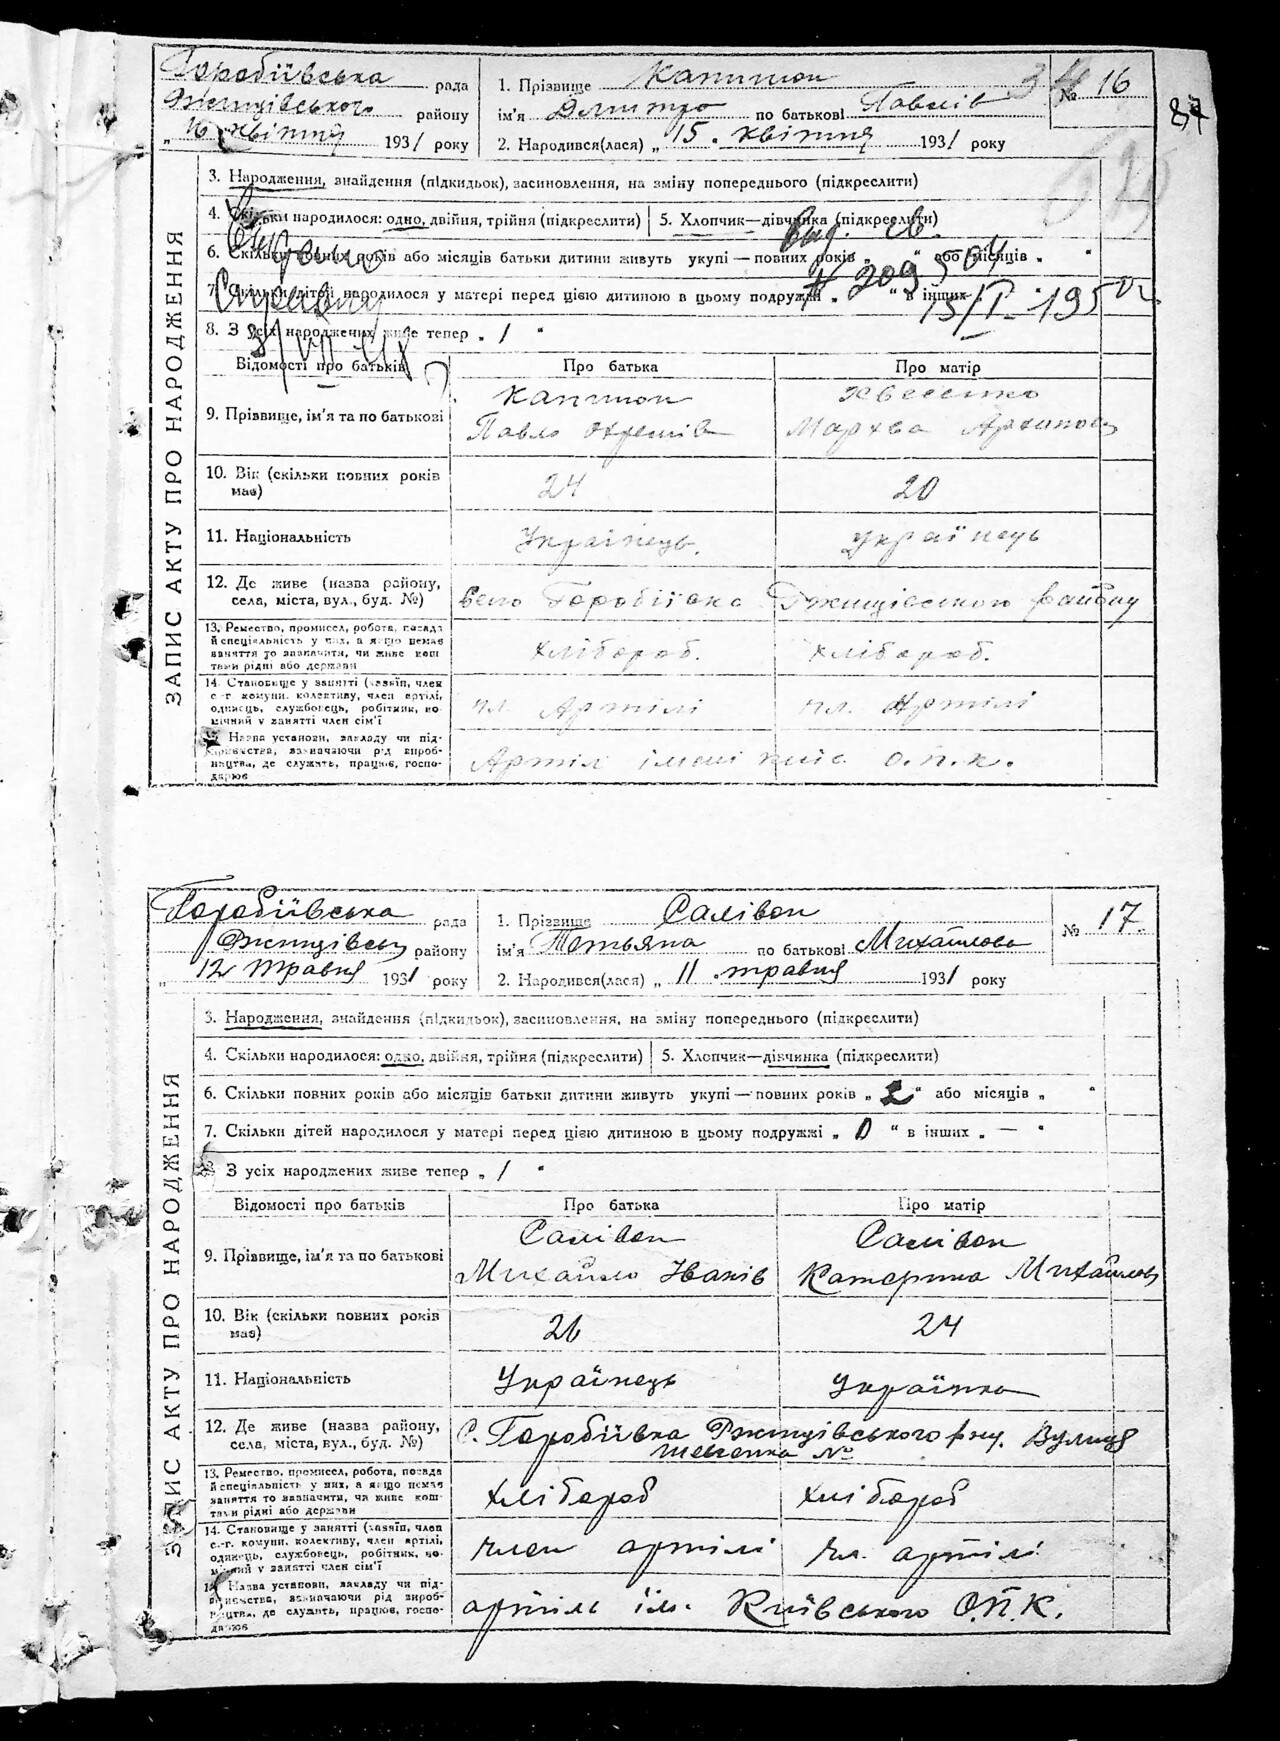 Горобіївська рада
Ржищівського району
„ 16 квітня 1931 року
1. Прізвище Капшток
ім'я Дмитро по батькові Павлів
2. Народився(лася) „ 15 . квітня 1931 року
№ 16
ЗАПИС АКТУ ПРО НАРОДЖЕННЯ
3. Народження, знайдення (підкидьок), засиновлення, на зміну попереднього (підкреслити)
4. Скільки народилося: одно, двійня, трійня (підкреслити) 5. Хлопчик—дівчинка (підкреслити)
6. Скільки повних років або місяців батьки дитини живуть укупі — повних років „ “ або місяців „ “
7. Скільки дітей народилося у матері перед цією дитиною в цьому подружжі „ “ в інших
8. З усіх народжених живе тепер „ 1 “
Видано
Справку
Вид. св.
15/I-195
Відомості про батьків Про батька Про матір
9. Прізвище, ім'я та по батькові
Павло Охремів
Мархва Архипова
10. Вік (скільки повних років має) 24 20
11. Національність Українець. Українець
12. Де живе (назва району, села, міста, вул., буд. №) Село Горобіївка Ржищівського району
13. Ремество, промисел, робота, посада й спеціяльність у них, а якщо немає заняття то зазначити, чи живе коштами рідні або держави хлібороб. хлібороб.
14. Становище у занятті (хазяїн, член с.-г. комуни, колективу, член артілі, одинець, службовець, робітник, помічний у занятті член сім'ї чл. Артілі чл. Артілі
15. Назва установи, закладу чи підприємства, зазначаючи рід виробництва, де служить, працює, господарює Артіл імені київ. О.П.К.
Горобіївська рада
Ржищівськ району
„ 12 травня 1931 року
1. Прізвище Салівон
ім'я Тетьяна по батькові Михайлова
2. Народився(лася) „ 11 . травня 1931 року
№ 17.
ЗАПИС АКТУ ПРО НАРОДЖЕННЯ
3. Народження, знайдення (підкидьок), засиновлення, на зміну попереднього (підкреслити)
4. Скільки народилося: одно, двійня, трійня (підкреслити) 5. Хлопчик—дівчинка (підкреслити)
6. Скільки повних років або місяців батьки дитини живуть укупі — повних років „ 2 “ або місяців „ “
7. Скільки дітей народилося у матері перед цією дитиною в цьому подружжі „ 0 “ в інших „ — “
8 З усіх народжених живе тепер „ 1 “
Відомості про батьків Про батька Про матір
9. Прізвище, ім'я та по батькові Салівон Салівон
Михайло Іванів Катерина Михайлов
10. Вік (скільки повних років має) 26 24
11. Національність Українець Українка
12. Де живе (назва району, села, міста, вул., буд. №) С. Горобіївка Ржищівського р-ну. Вулиця
Шевченка №
13. Ремество, промисел, робота, посада й спеціяльність у них, а якщо немає заняття то зазначити, чи живе коштами рідні або держави хлібороб хлібороб
14. Становище у занятті (хазяїн, член с.-г. комуни, колективу, член артілі, одинець, службовець, робітник, помічний у занятті член сім'ї член артілі чл. артілі
15. Назва установи, закладу чи підприємства, зазначаючи рід виробництва, де служить, працює, господарює артіль ім. Київського О.П.К.